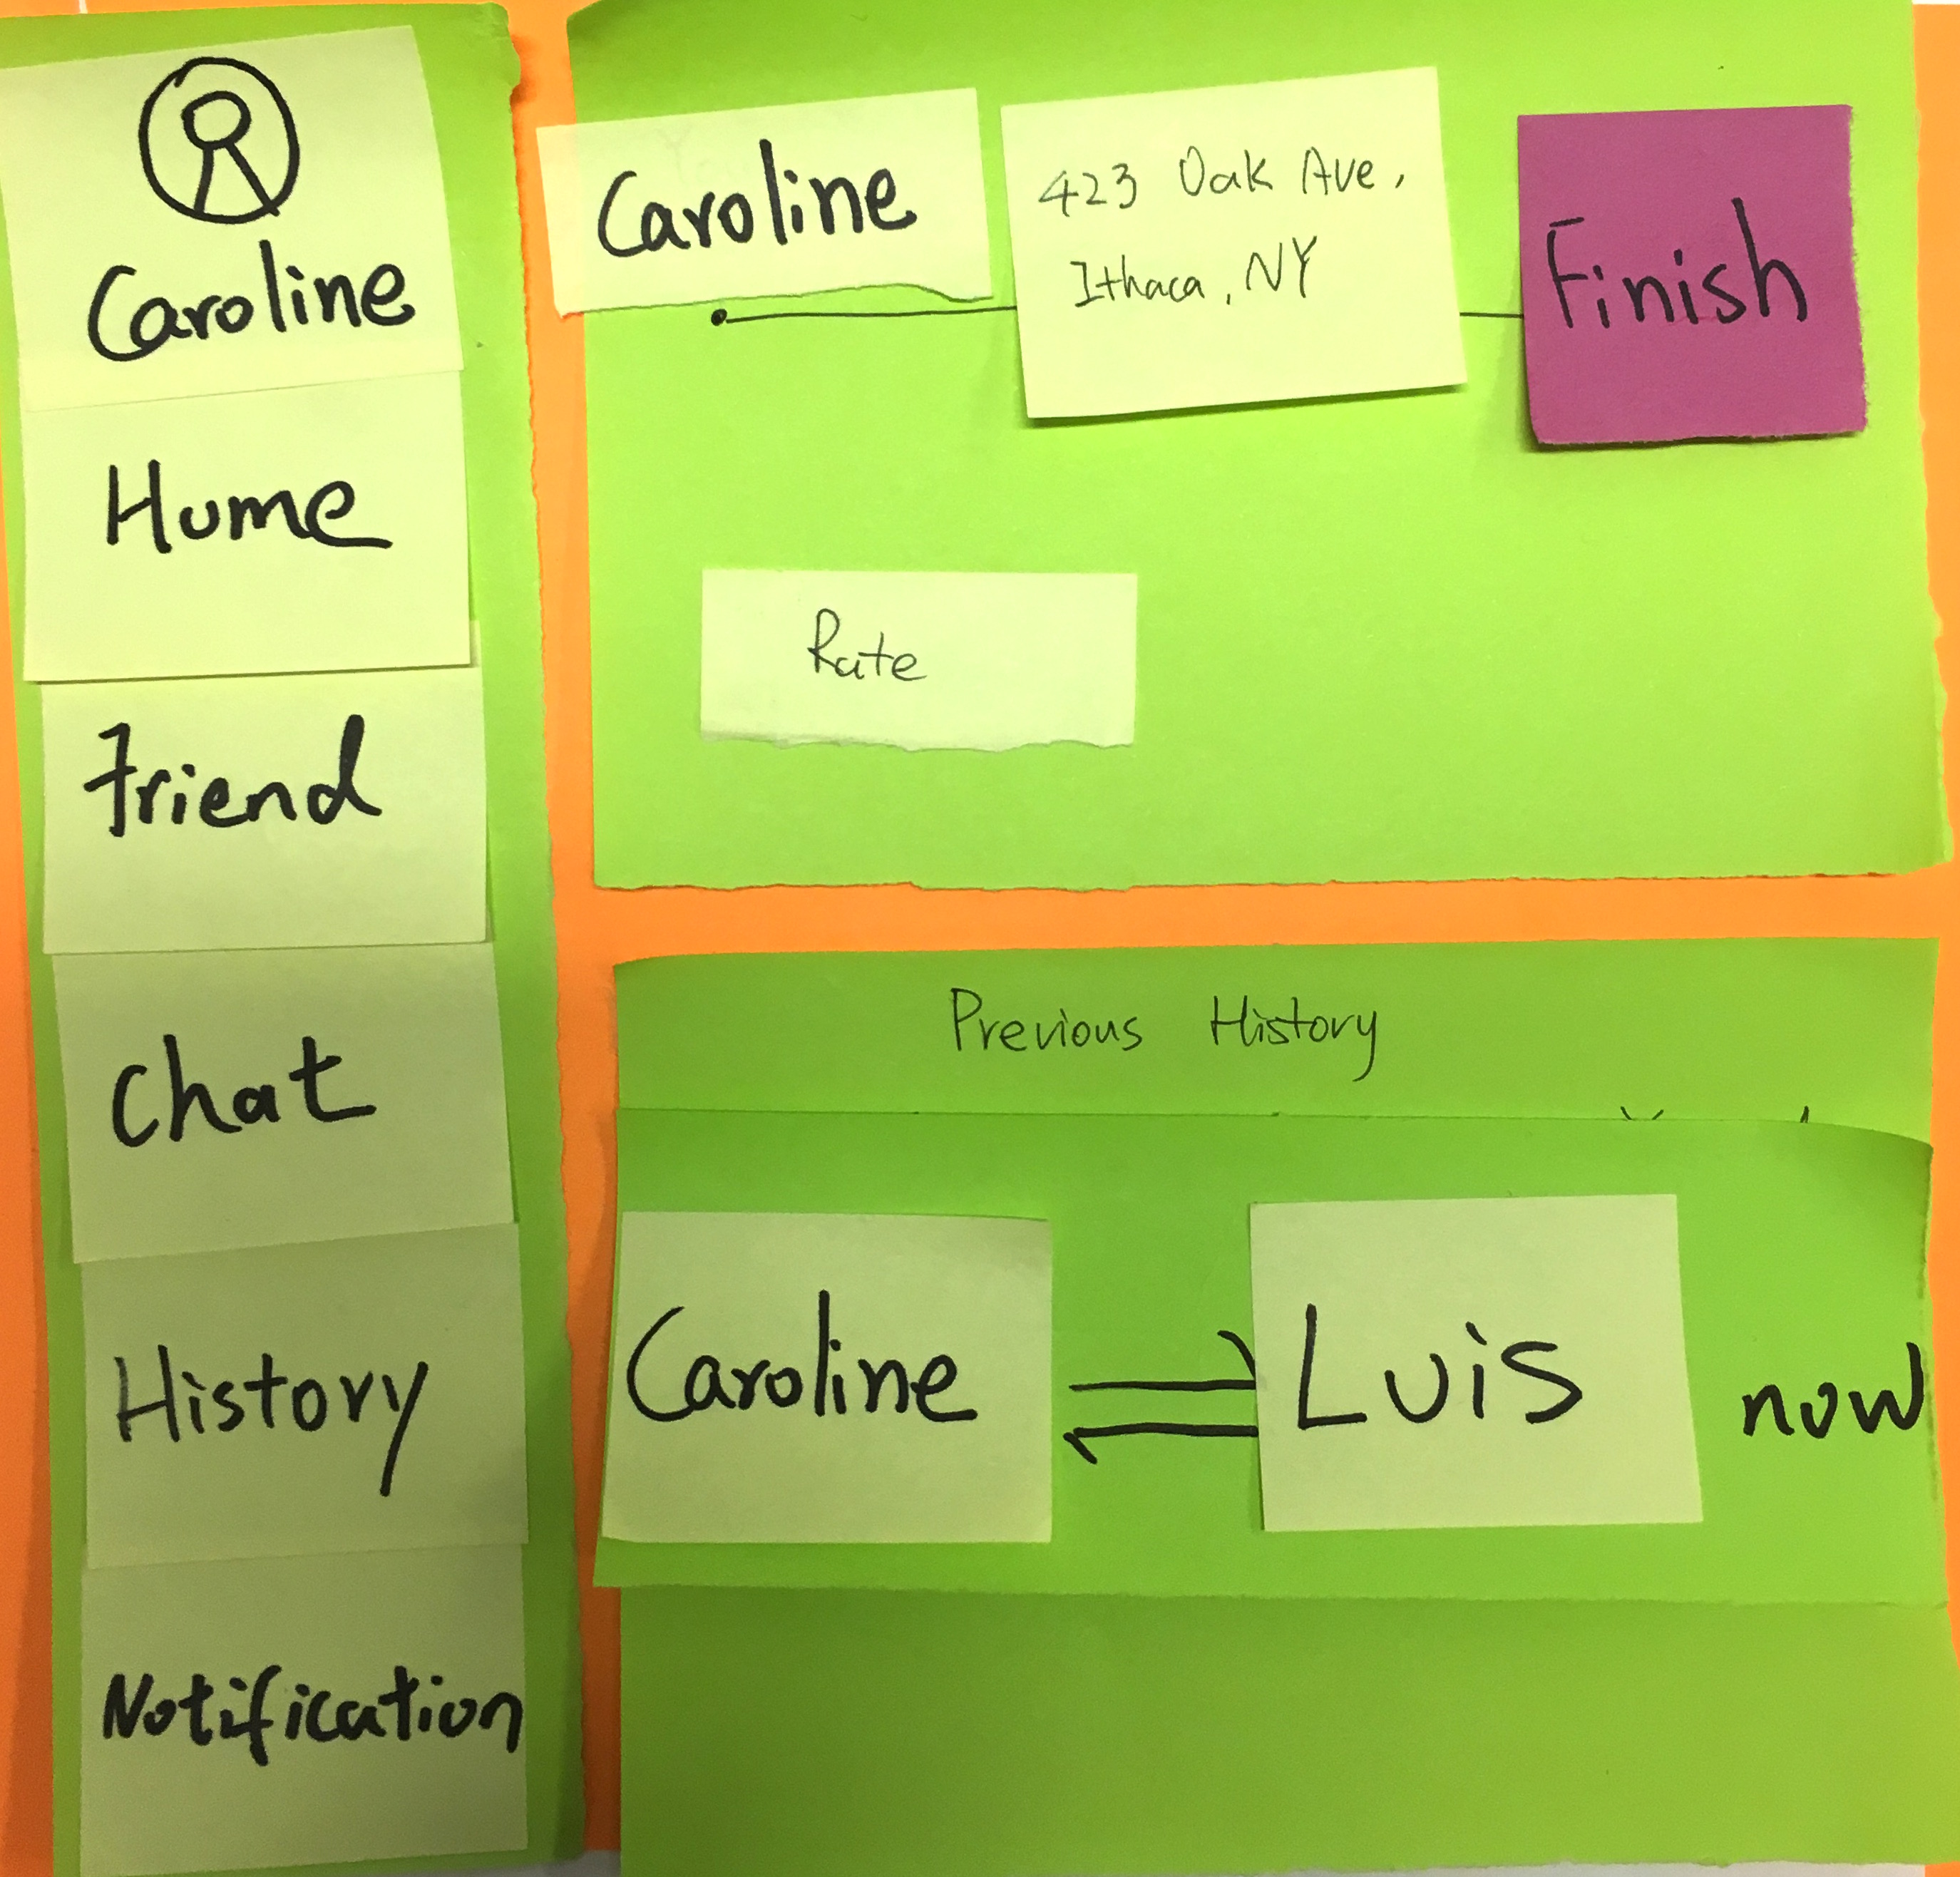 Caroline
Home
Friend
Chat
History
Notification
Caroline
423 Oak Ave,
Ithaca, NY
Finish
Rate
Previous History
Caroline
Luis
now